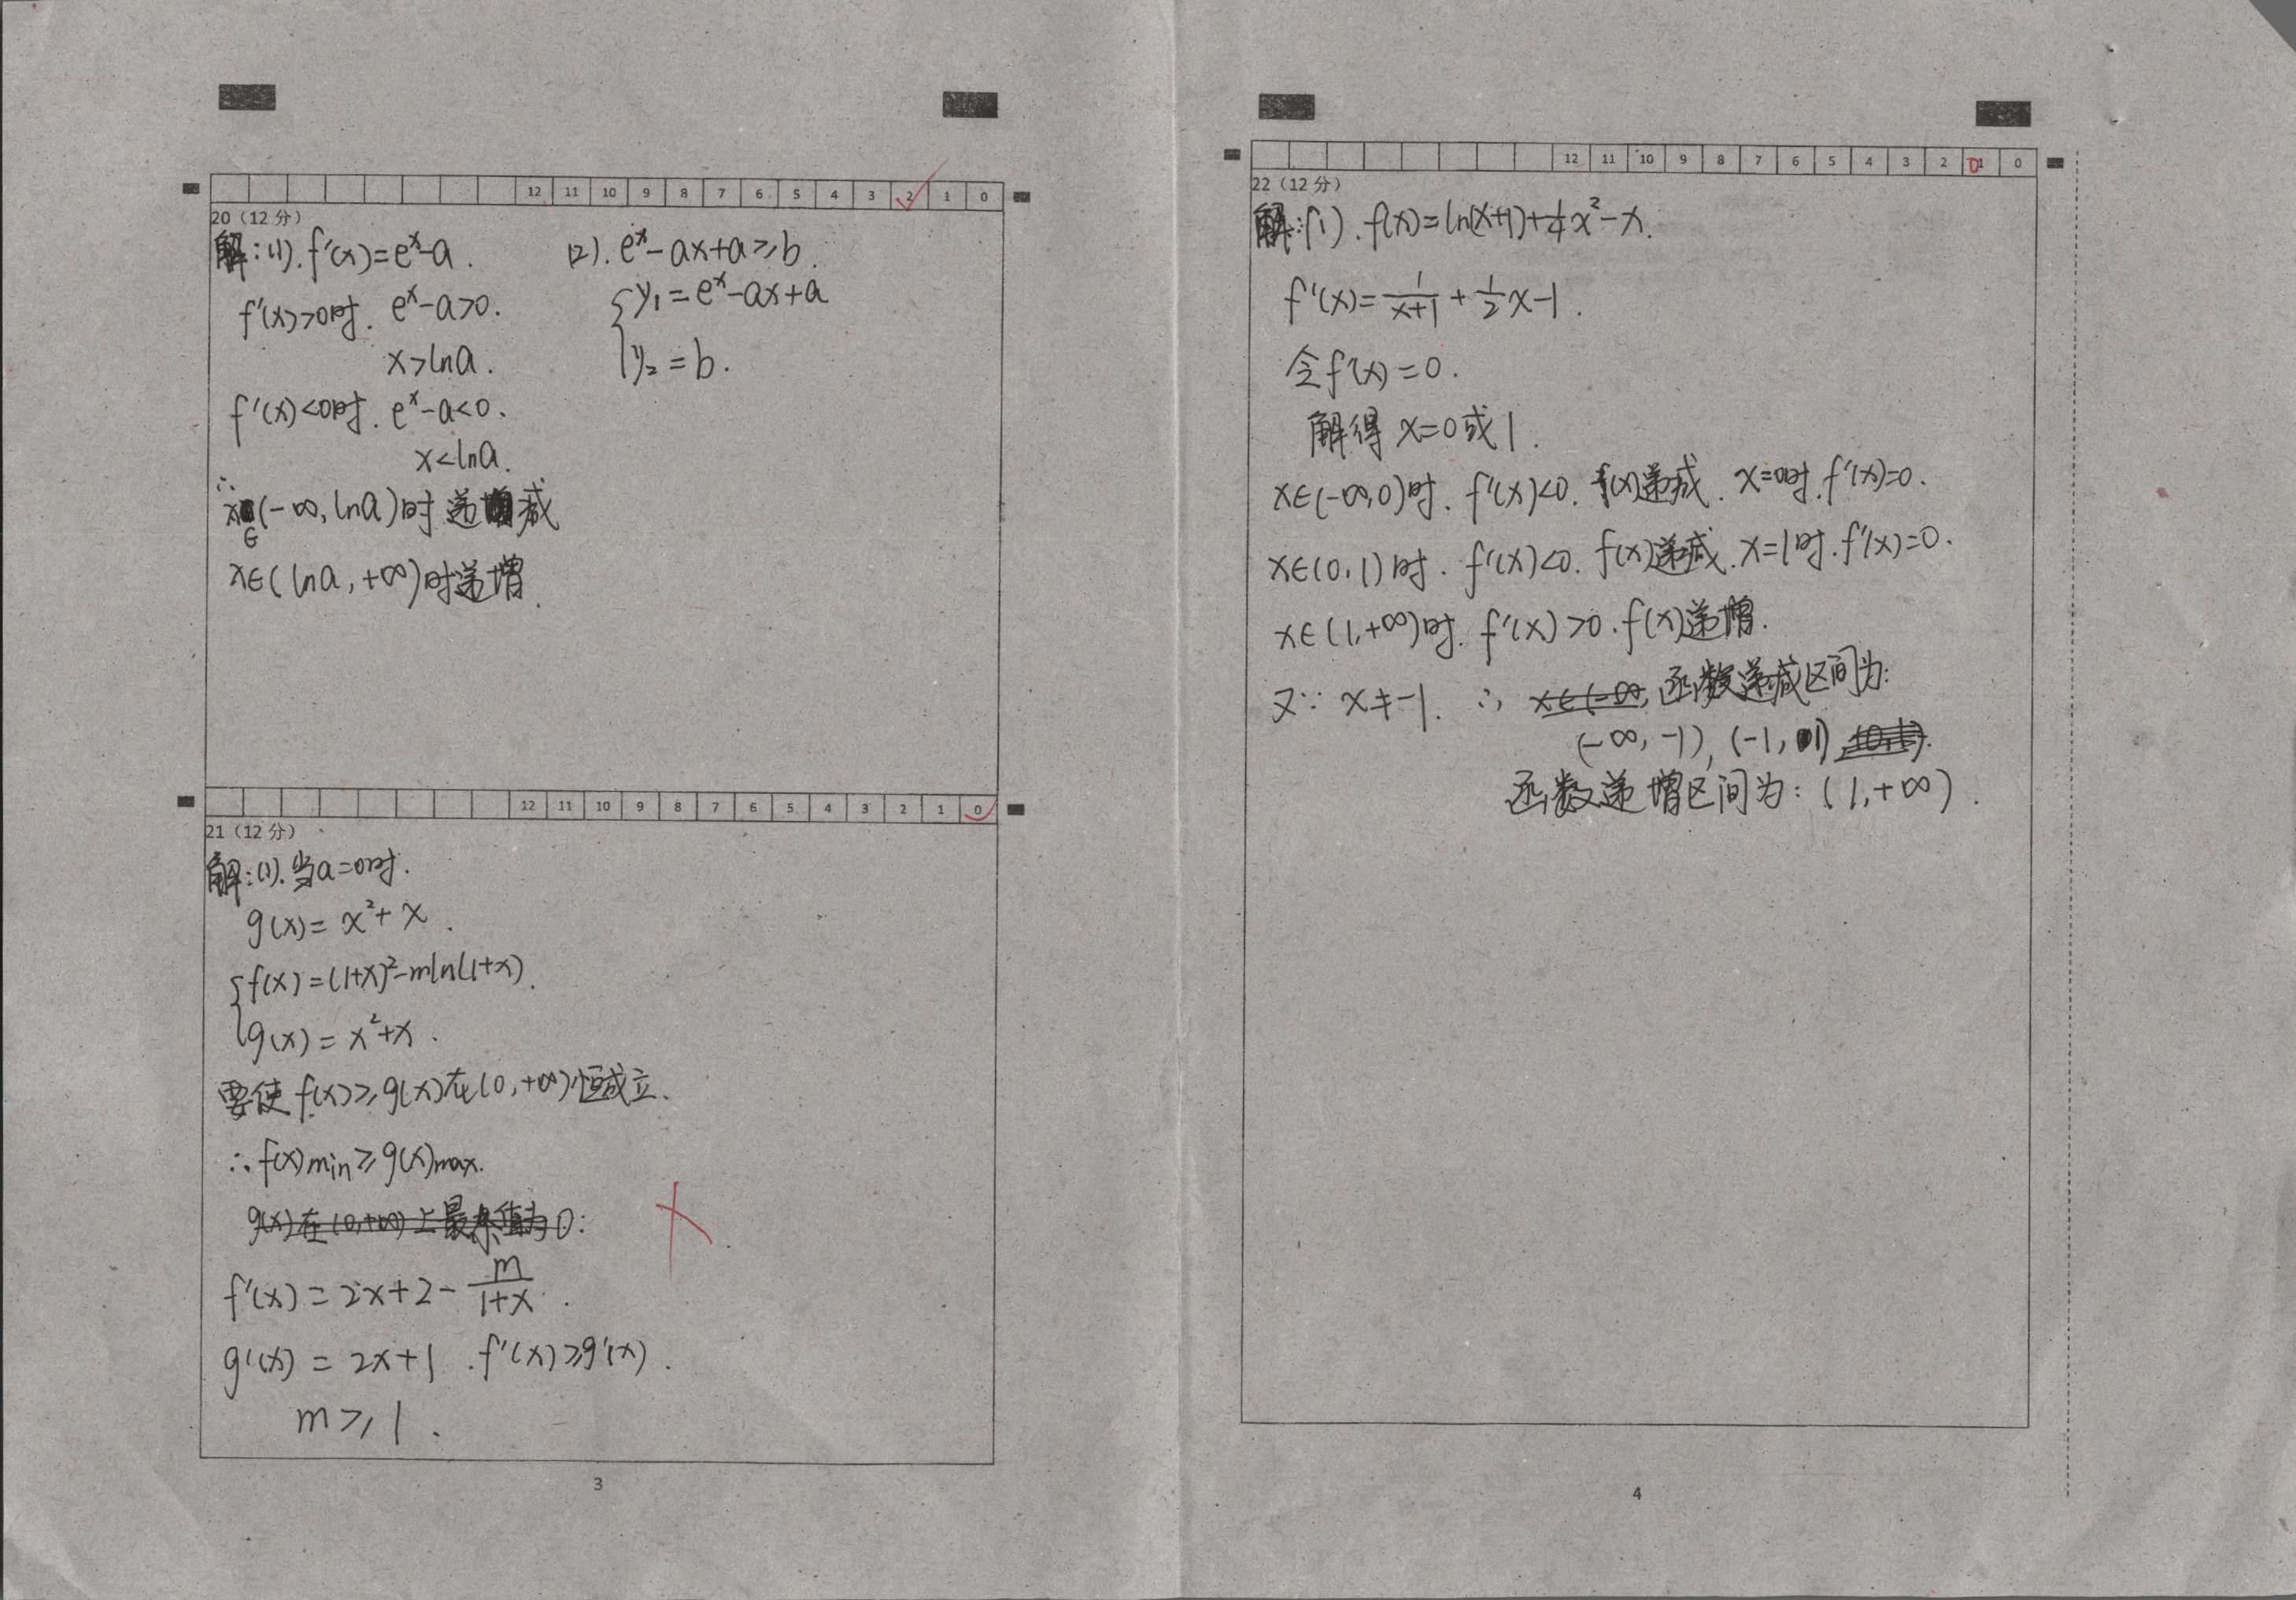 12 11 10 9 8 7 6 5 4 3 2 1 0
20（12分）
解:(1). f'(x)=e^x-a.
f'(x)>0时. e^x-a>0.
x>lna.
f'(x)<0时. e^x-a<0.
x<lna.
∴ x∈(-∞,lna)时递减
x∈(lna,+∞)时递增.
(2). e^x-ax+a≥b.
{y₁=e^x-ax+a
y₂=b.
12 11 10 9 8 7 6 5 4 3 2 1 0
21（12分）
解:(1).当a=0时.
g(x)=x²+x.
{f(x)=(1+x)²-mln(1+x).
g(x)=x²+x.
要使f(x)≥g(x)在(0,+∞)恒成立.
∴f(x)min≥g(x)max.
g(x)在(0,+∞)上最 值为0:
f'(x)=2x+2-m/(1+x).
g'(x)=2x+1 .f'(x)≥g'(x).
m≥1.
3
12 11 10 9 8 7 6 5 4 3 2 1 0
22（12分）
解:(1).f(x)=ln(x+1)+1/4x²-x.
f'(x)=1/(x+1)+1/2x-1.
令f'(x)=0.
解得x=0或1.
x∈(-∞,0)时. f'(x)<0. f(x)递减. x=0时.f'(x)=0.
x∈(0,1)时. f'(x)<0. f(x)递减.x=1时.f'(x)=0.
x∈(1,+∞)时. f'(x)>0.f(x)递增.
又∵x≠-1. ∴ x∈(-∞, 函数递减区间为:
(-∞,-1),(-1,1) (0,1).
函数递增区间为:(1,+∞).
4